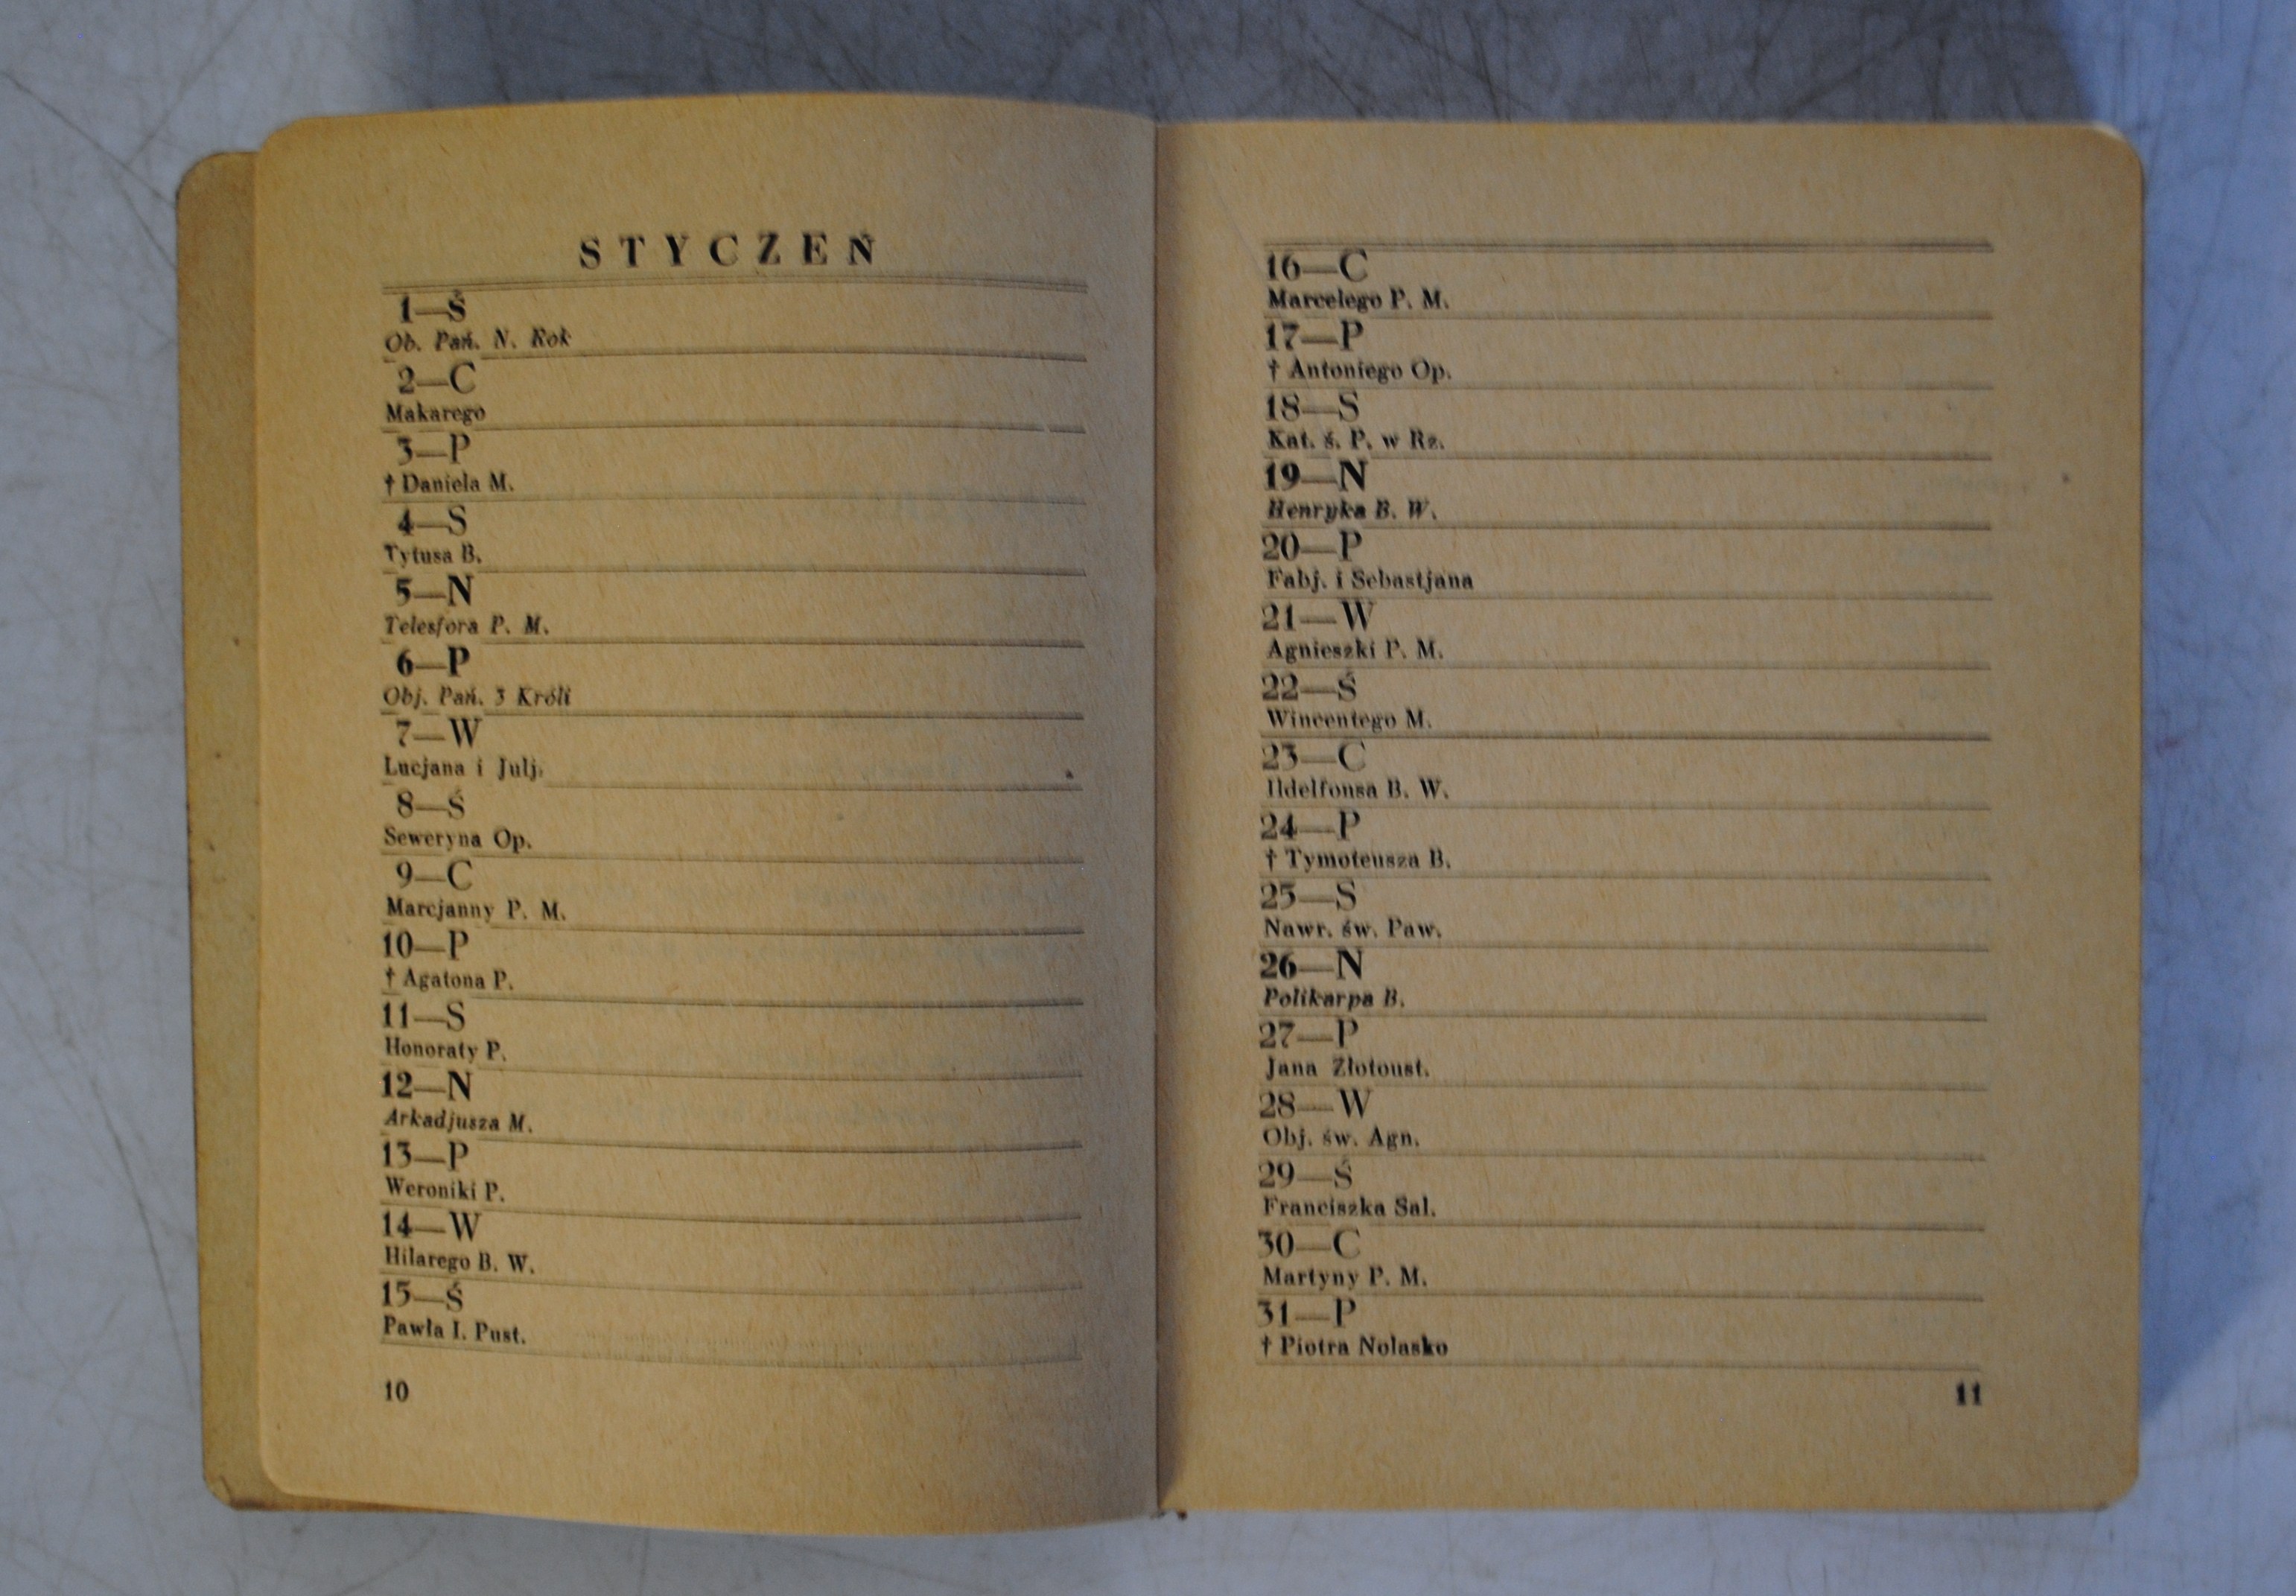 STYCZEŃ
1—Ś
Ob. Pań. N. Rok
2—C
Makarego
3—P
† Daniela M.
4—S
Tytusa B.
5—N
Telesfora P. M.
6—P
Obj. Pań. 3 Króli
7—W
Lucjana i Julj.
8—Ś
Seweryna Op.
9—C
Marcjanny P. M.
10—P
† Agatona P.
11—S
Honoraty P.
12—N
Arkadjusza M.
13—P
Weroniki P.
14—W
Hilarego B. W.
15—Ś
Pawła I. Pust.
10
16—C
Marcelego P. M.
17—P
† Antoniego Op.
18—S
Kat. ś. P. w Rz.
19—N
Henryka B. W.
20—P
Fabj. i Sebastjana
21—W
Agnieszki P. M.
22—Ś
Wincentego M.
23—C
Ildelfonsa B. W.
24—P
† Tymoteusza B.
25—S
Nawr. św. Paw.
26—N
Polikarpa B.
27—P
Jana Złotoust.
28—W
Obj. św. Agn.
29—Ś
Franciszka Sal.
30—C
Martyny P. M.
31—P
† Piotra Nolasko
11